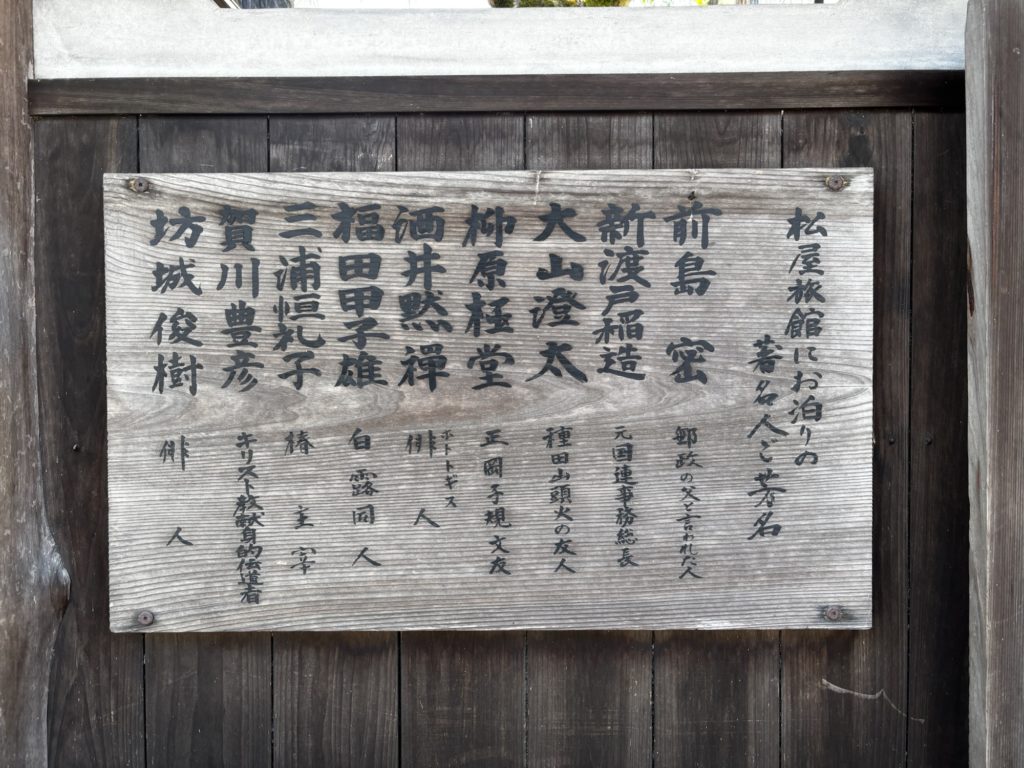 松屋旅館にお泊りの
著名人ご芳名
前島 密 郵政の父と言われた人
新渡戸稲造 元国連事務総長
大山澄太 種田山頭火の友人
柳原極堂 正岡子規文友
酒井黙禅 ホトトギス俳人
福田甲子雄 白露同人
三浦恒礼子 椿主宰
賀川豊彦 キリスト教献身的伝道者
坊城俊樹 俳人